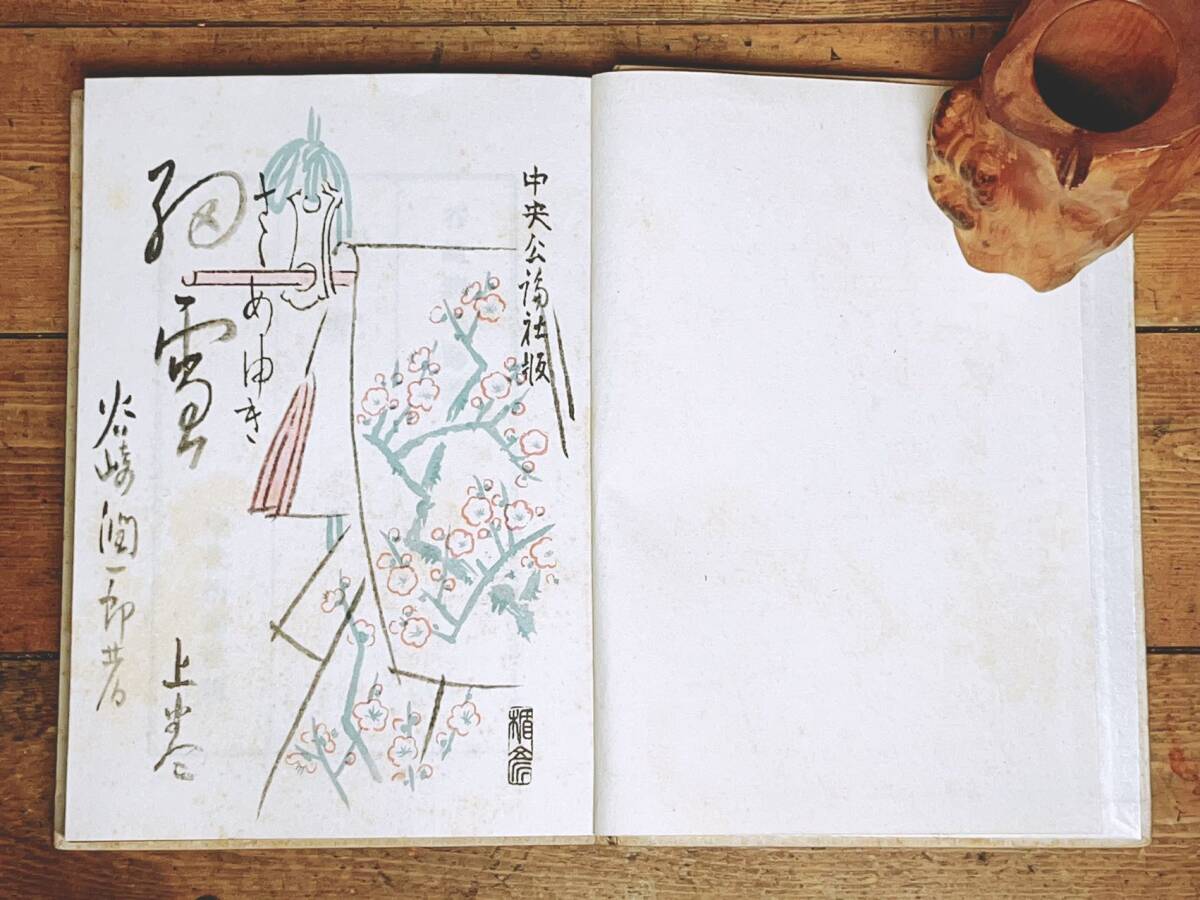 中央公論社版
さゝめゆき
細雪
上巻
谷崎潤一郎著